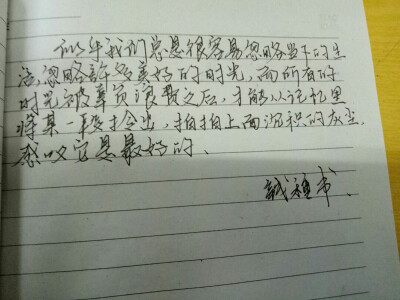 似乎我们总是很容易忽略当下的生
活,忽略許多美好的时光,而所有的
时光被辜负浪费之后,才能从记忆里
将某一段拎出,拍拍上面沉积的灰尘,
感叹它是最好的、